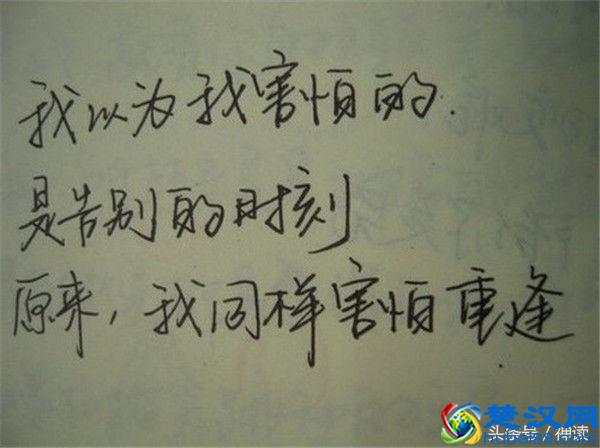 我以为我害怕的.
是告别的时刻
原来，我同样害怕重逢
楚汉网
头条号／禅读